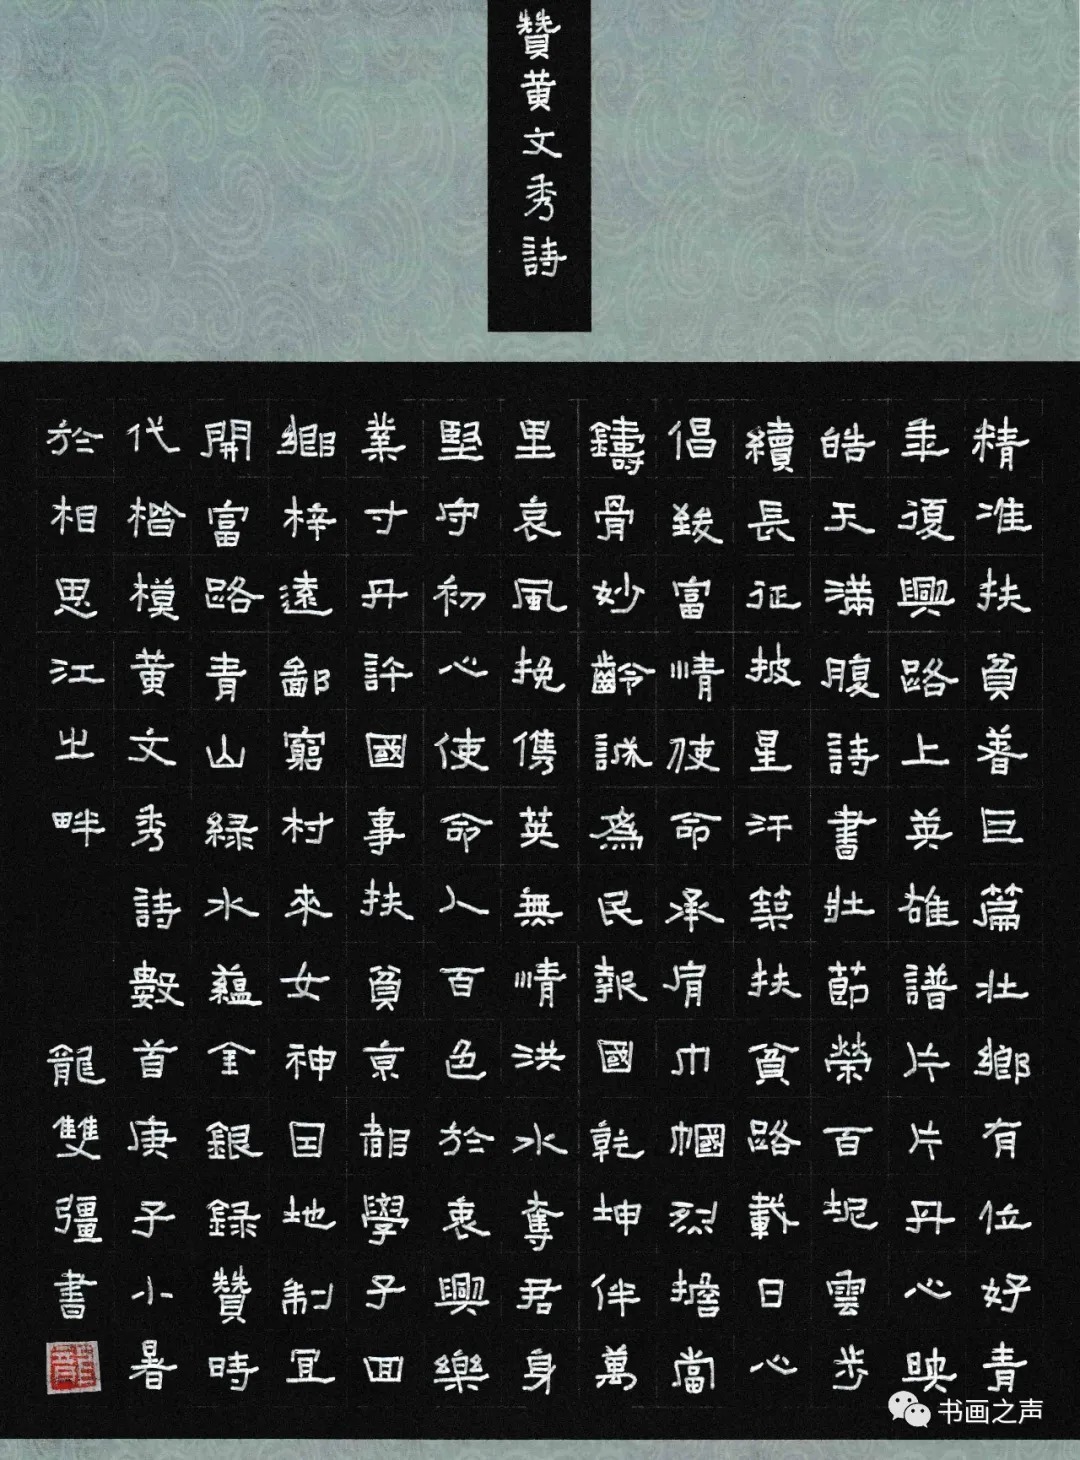 贊黄文秀詩
精准扶貧善巨篇壯鄉有位好青
年復興路上英雄譜片片丹心映
皓天滿腹詩書壯節榮百坭雲步
續長征披星汗築扶貧路載日心
倡致富情使命承肩巾幗烈擔當
鑄骨妙齡誠爲民報國乾坤伴萬
里哀風挽儁英無情洪水奪君身
堅守初心使命人百色於衷興樂
業寸丹許國事扶貧京都學子回
鄉梓遠鄙窮村來女神因地制宜
開富路青山緑水蘊金銀録贊時
代楷模黄文秀詩數首庚子小暑
於相思江之畔 龍雙彊書
书画之声